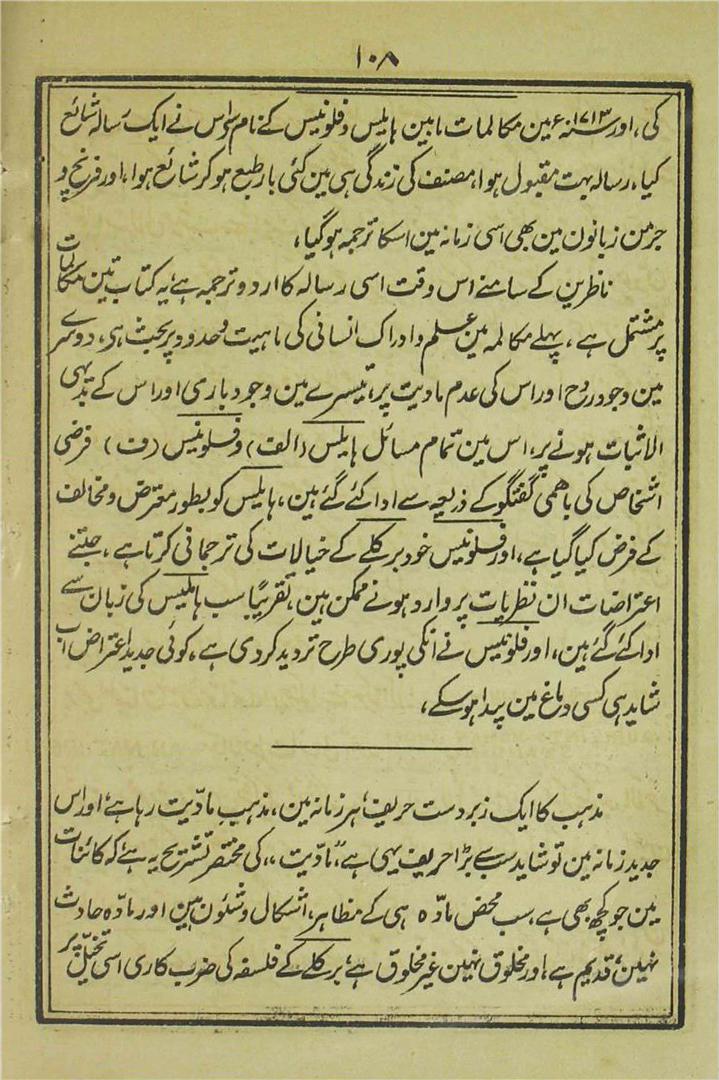 ۱۰۸
کی، اور ۱۷۱۳ء مین مکالمات مابین ہایلس وفلونیس کے نام سے اس نے ایک رسالہ شائع
کیا، رسالہ بہت مقبول ہوا، مصنف کی زندگی ہی مین کئی بار طبع ہو کر شائع ہوا، اور فرنچ و
جرمن زبانون مین بھی اسی زمانہ مین اسکا ترجمہ ہوگیا،
ناظرین کے سامنے اس وقت اسی رسالہ کا اردو ترجمہ ہے، یہ کتاب تین مکالمات
پر مشتمل ہے، پہلے مکالمہ مین علم و ادراک انسانی کی ماہیت وحدود پر بحث ہی، دوسرے
مین وجود روح اور اس کی عدم مادیت پر، تیسرے مین وجود باری اور اس کے بدیہی
الاثبات ہونے پر، اس مین تمام مسائل ہایلس (الف) و فلونیس (ف) فرضی
اشخاص کی باہمی گفتگو کے ذریعہ سے ادا کئے گئے ہین، ہایلس کو بطور معترض و مخالف
کے فرض کیا گیا ہے، اور فلونیس خود برکلے کے خیالات کی ترجمانی کرتا ہے، جتنے
اعتراضات ان نظریات پر وارد ہونے ممکن ہین، تقریبًا سب ہایلس کی زبان سے
ادا کئے گئے ہین، اور فلونیس نے انکی پوری طرح تردید کردی ہے، کوئی جدید اعتراض اب
شاید ہی کسی دماغ مین پیدا ہوسکے،
مذہب کا ایک زبردست حریف، ہر زمانہ مین، مذہب مادّیت رہا ہے، اور اس
جدید زمانہ مین تو شاید سب سے بڑا حریف یہی ہے، "مادّیت"، کی مختصر تشریح یہ ہے کہ کائنات
مین جو کچھ بھی ہے، سب محض مادّہ ہی کے مظاہر، اشکال و شئون ہین اور مادّہ حادث
نہین، قدیم ہے، اور مخلوق نہین غیر مخلوق ہے، برکلے کے فلسفہ کی ضرب کاری اسی تخیّل پر